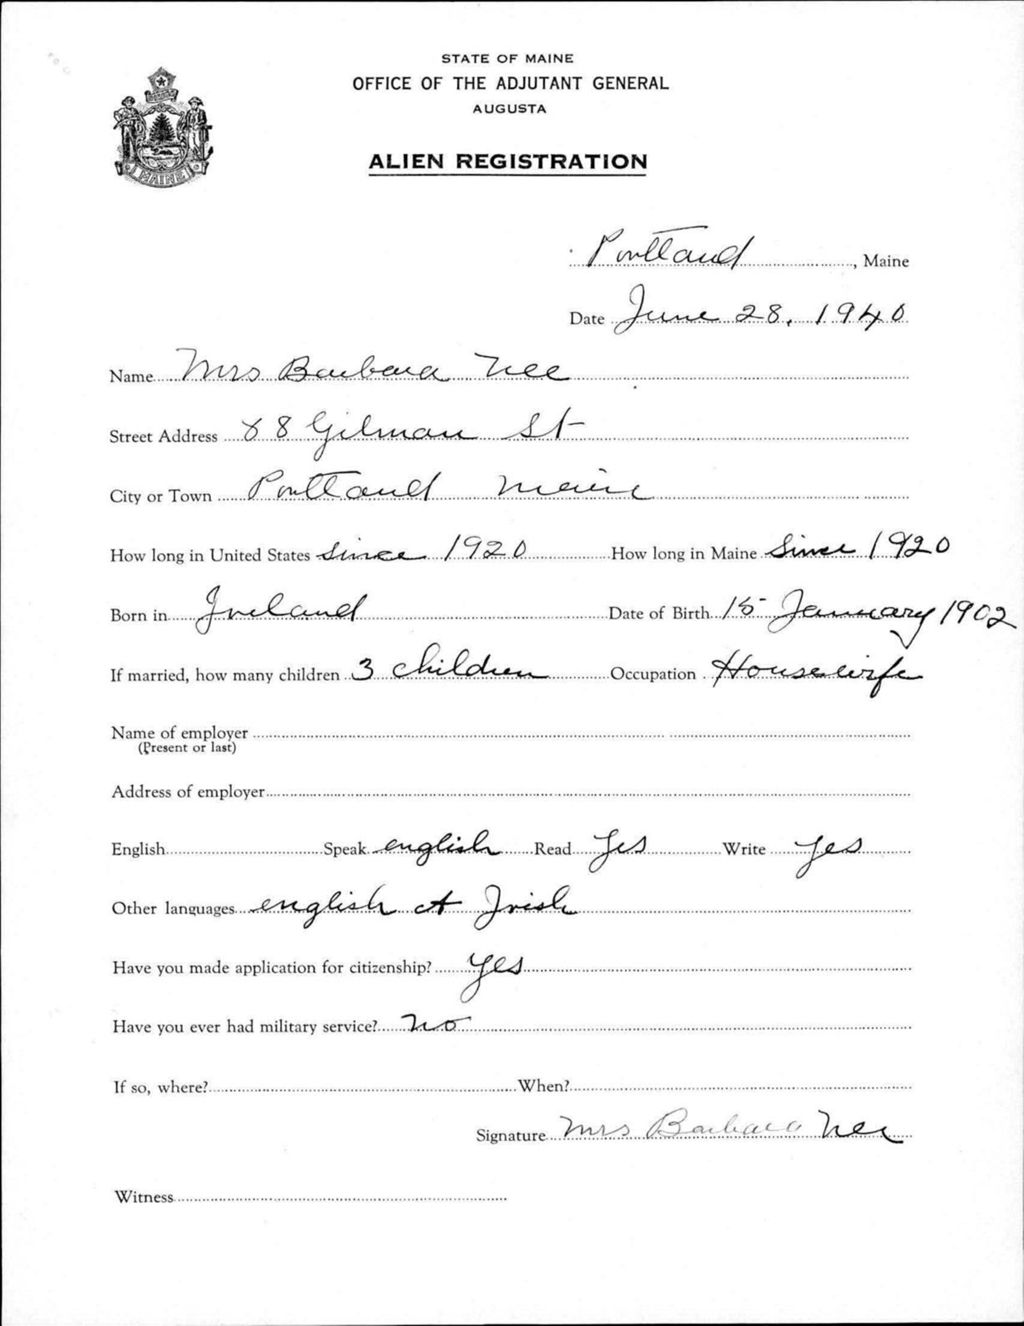 STATE OF MAINE
OFFICE OF THE ADJUTANT GENERAL
AUGUSTA
ALIEN REGISTRATION
MAINE
Portland, Maine
Date June 28, 1940
Name Mrs Barbara Nee
Street Address 88 Gilman St
City or Town Portland Maine
How long in United States Since 1920 How long in Maine Since 1920
Born in Ireland Date of Birth 15 January 1902
If married, how many children 3 children Occupation Housewife
Name of employer
(Present or last)
Address of employer
English Speak english Read Yes Write yes
Other languages english & Irish
Have you made application for citizenship? yes
Have you ever had military service? no
If so, where? When?
Signature Mrs Barbara Nee
Witness